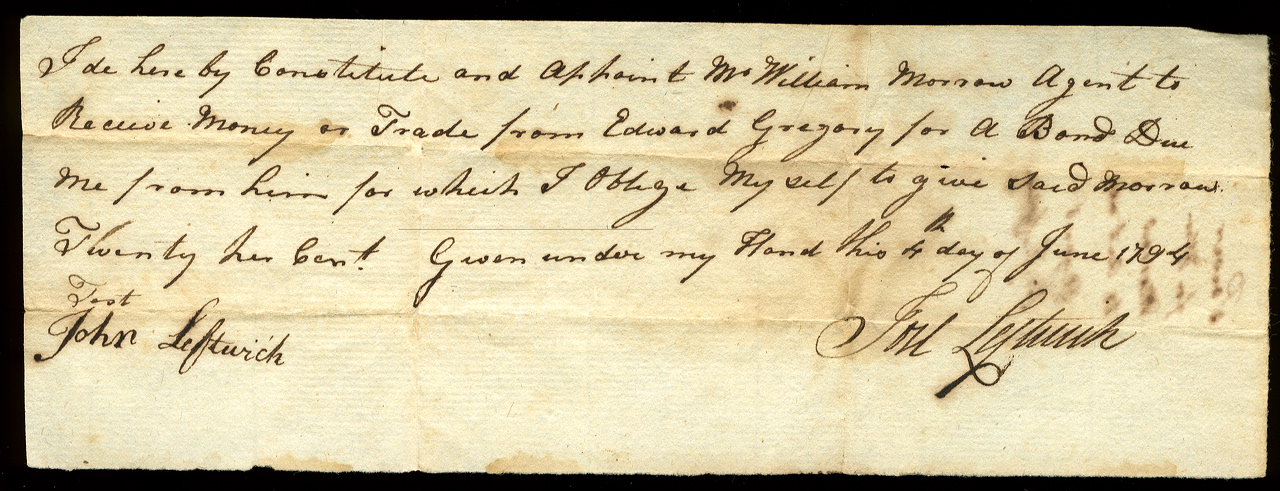 I do here by Constitute and Appoint Mr William Morrow Agent to
Receive Money or Trade from Edward Gregory for A Bond Due
me from him for which I Oblige Myself to give said Morrow
Twenty per Cent. Given under my Hand this 4th day of June 1794
Test
John Leftwich
Joel Leftwich